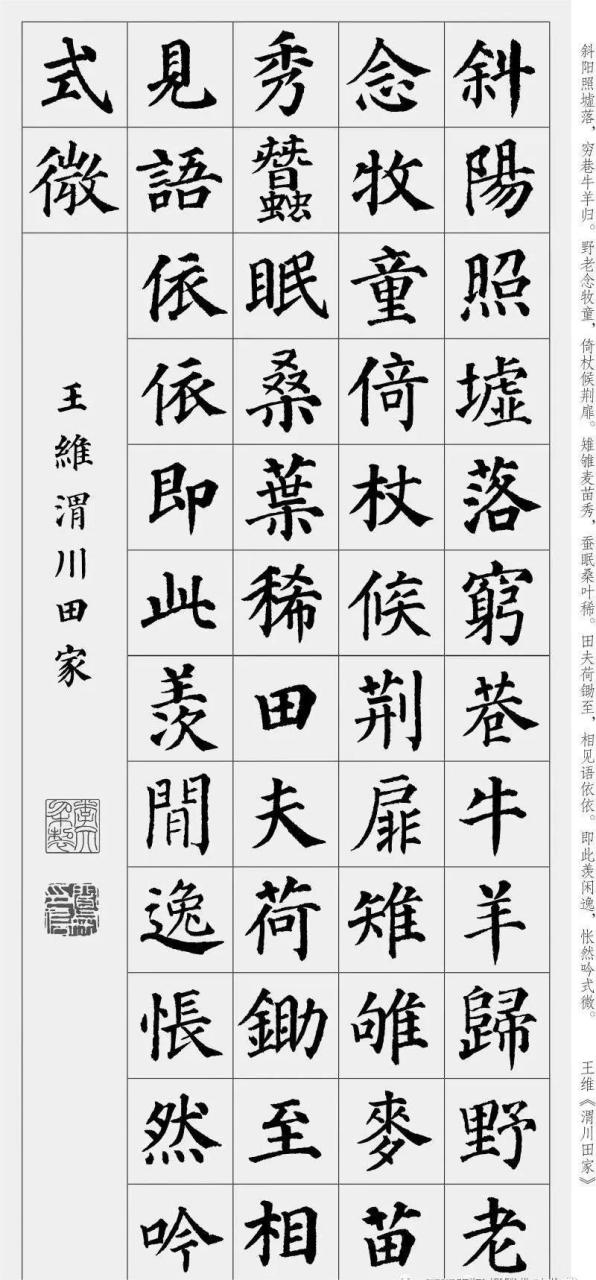 斜阳照墟落，穷巷牛羊归。野老念牧童，倚杖候荆扉。雉雊麦苗秀，蚕眠桑叶稀。田夫荷锄至，相见语依依。即此羡闲逸，怅然吟式微。 王维《渭川田家》
斜陽照墟落窮巷牛羊歸野老
念牧童倚杖候荆扉雉雊麥苗
秀蠶眠桑葉稀田夫荷鋤至相
見語依依即此羨閒逸悵然吟
式微
王維渭川田家